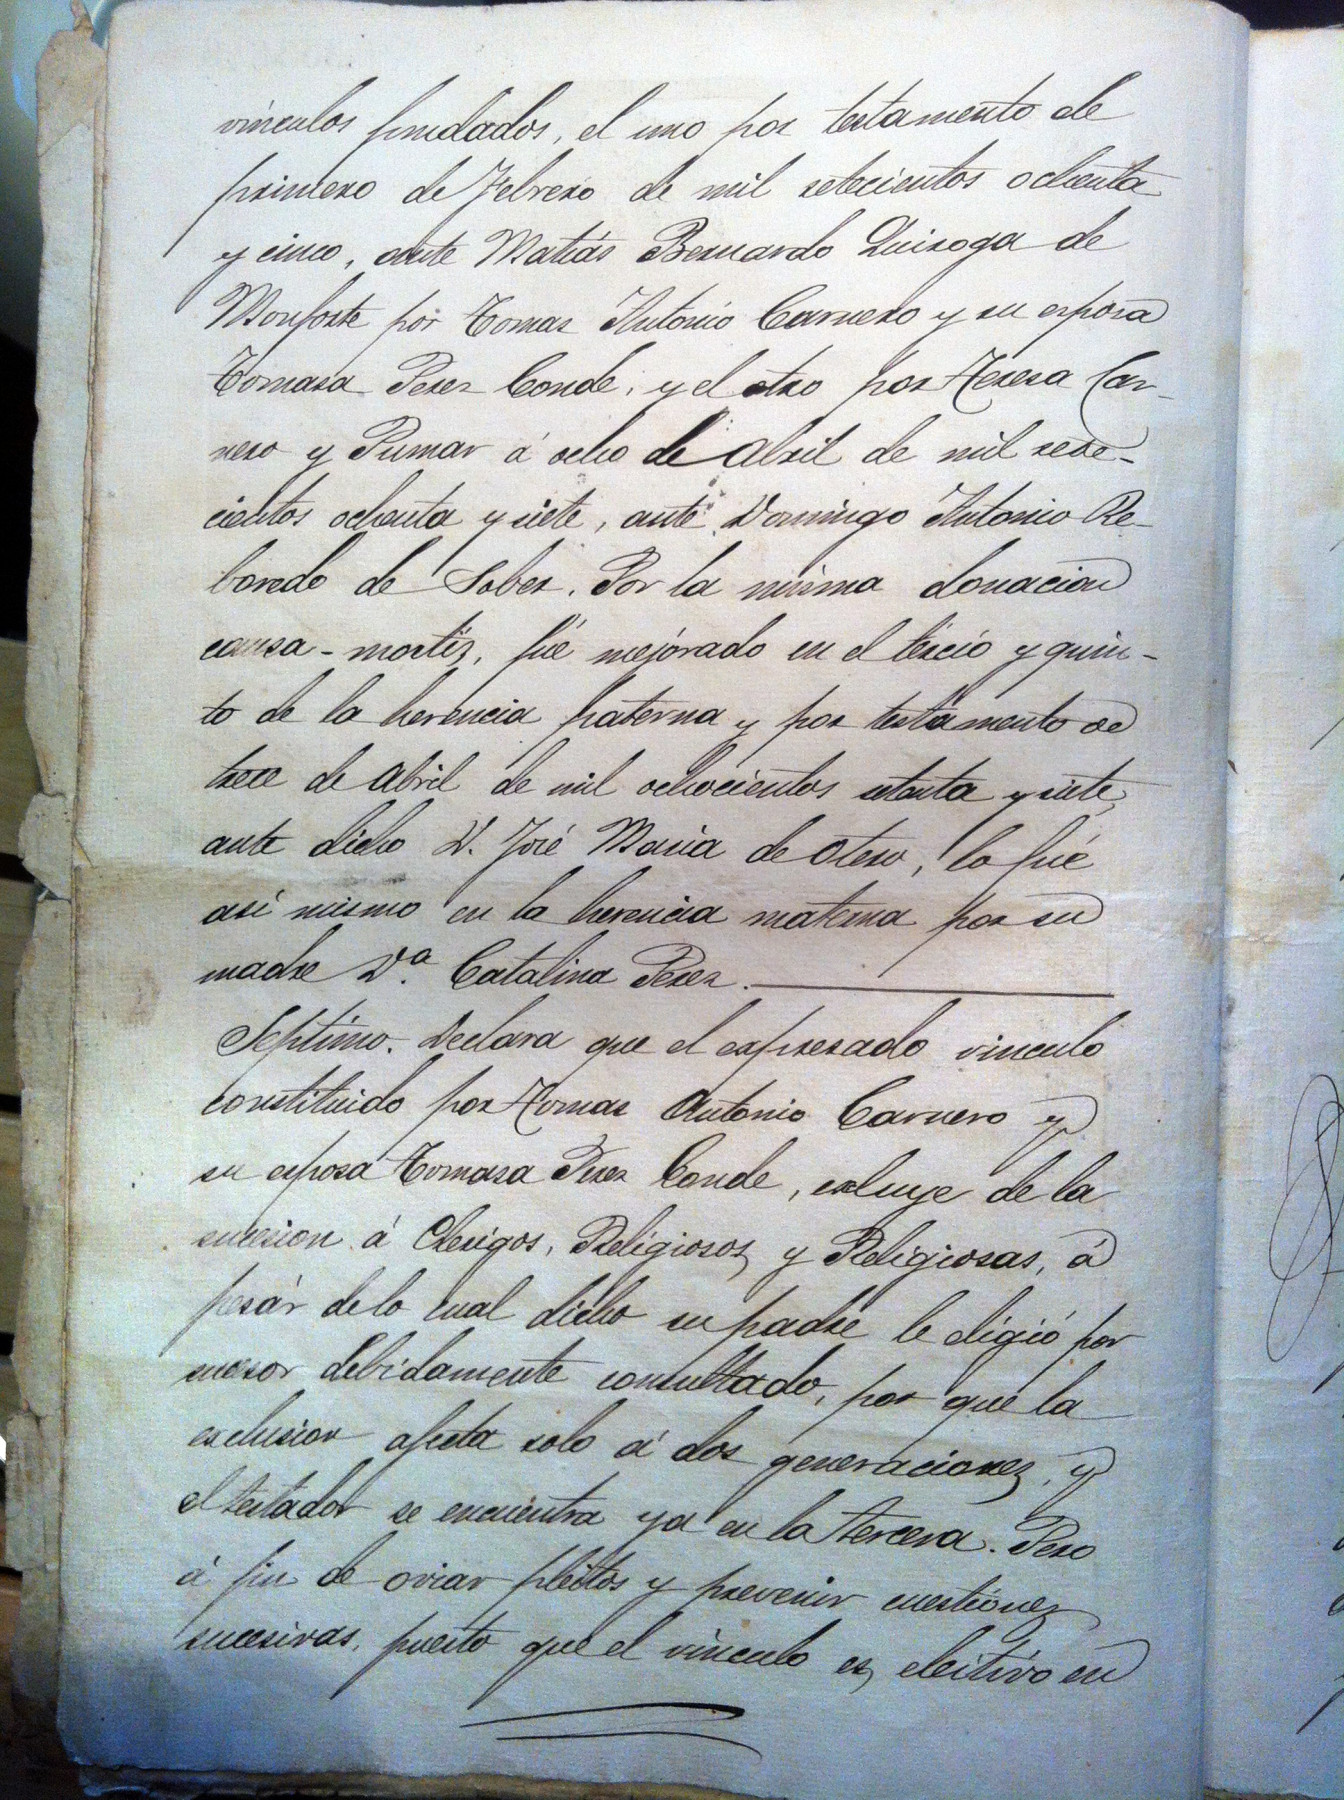 vínculos fundados, el uno por testamento de
primero de Febrero de mil setecientos ochenta
y cinco, ante Matías Bernardo Quiroga de
Monforte por Tomas Antonio Carnero y su esposa
Tomasa Perez Conde, y el otro por Teresa Car-
nero y Pumar á ocho de Abril de mil sete-
cientos ochenta y siete, ante Domingo Antonio Re-
boredo de Sober. Por la misma donacion
causa-mortis, fué mejorado en el tercio y quin-
to de la herencia paterna y por testamento de
trece de Abril de mil ochocientos setenta y siete,
ante dicho D. José Maria de Otero, lo fué
así mismo en la herencia materna por su
madre Dª. Catalina Perez.
Septimo. Declara que el expresado vinculo
constituido por Tomas Antonio Carnero y
su esposa Tomasa Perez Conde, excluye de la
sucesion á Clerigos, Religiosos y Religiosas, á
pesár de lo cual dicho su padre le eligió por
sucesor debidamente consultado, por que la
exclusion afecta solo á dos generaciones, y
el testador se encuentra ya en la tercera. Pero
á fin de oviar pleitos y prevenir cuestiones
sucesivas, puesto que el vinculo es electivo en